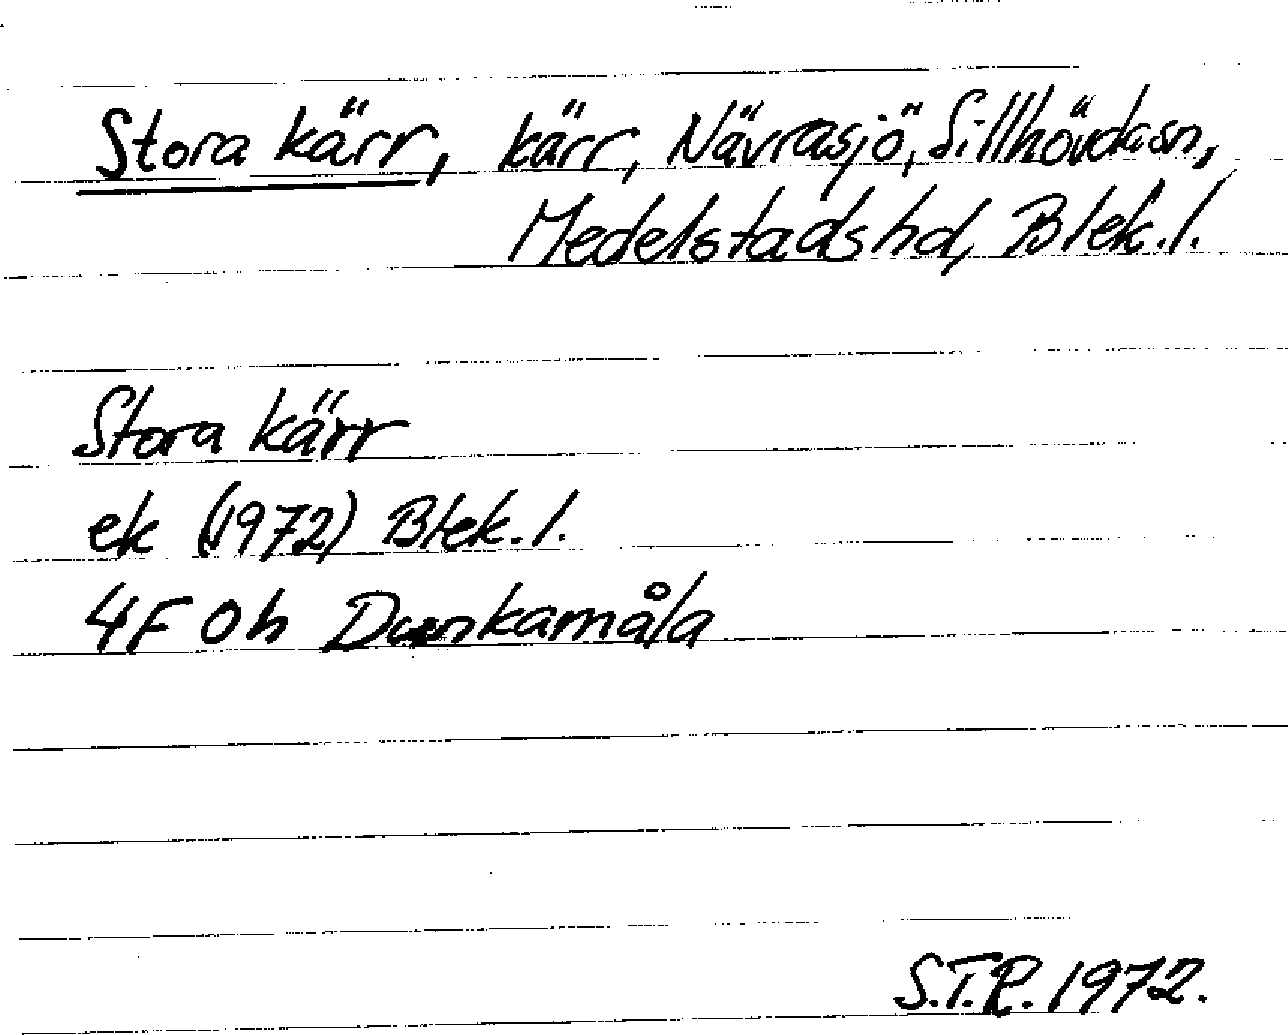 Stora kärr, kärr, Nävrasjö, Sillhövdasn,
Medelstadshd, Blek.l.
Stora kärr
ek (1972) Blek.l.
4F 0h Dunkamåla
S.T.R. 1972.